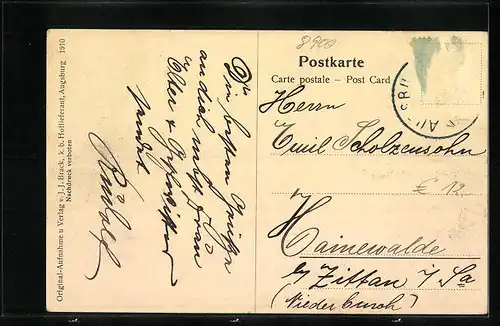 8900
Postkarte
Carte postale – Post Card
Original-Aufnahme u Verlag v. J. J. Brack, k. b. Hoflieferant, Augsburg 1910
Nachdruck verboten
Die besten Grüße
an dich nebst Frau
Eltern u Geschwister
sendet
Rudolf
Herrn
Emil Scholzensohn
€ 12
Hainewalde
b/ Zittau i/ Sa
(Niederbusch)